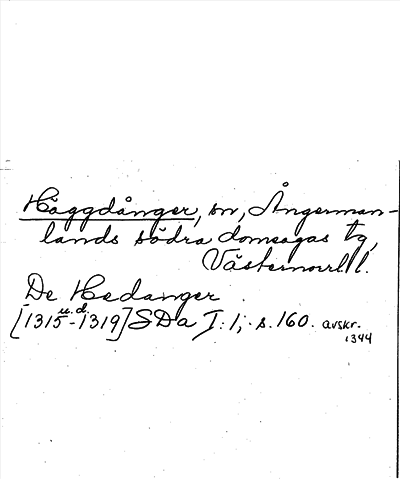 Häggdånger, sn, Ångerman-
lands södra domsagas tg,
Västernorrl. l.
De Hedanger
u. d.
[1315-1319] SDa I: 1, s. 160. avskr.
1344